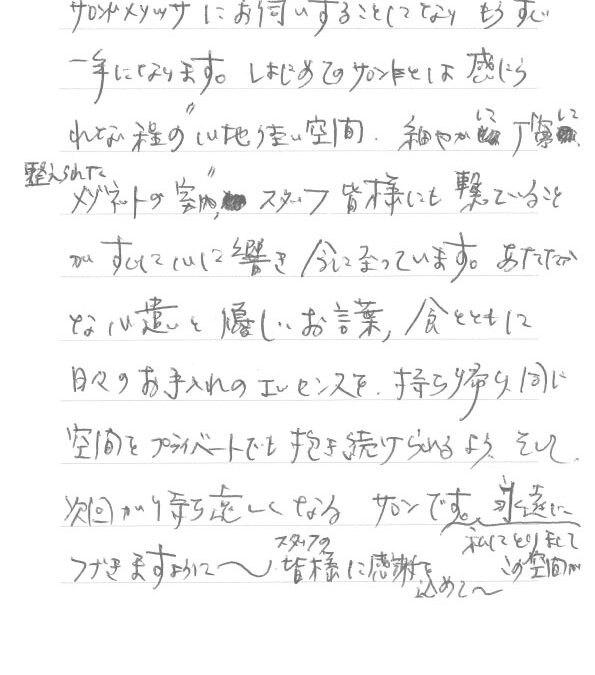 サロンドメリッサにお伺いすることになり もうすぐ
一年になります。はじめてのサロンとは 感じら
れない程の〃心地 佳い空間、細やかして 丁寧して
整えられた
メゾネットの 室内〃 スタッフ 皆様にも 繋っていること
が すして心に響き 今に至っています。あたたか
な心遣いと 優しいお言葉, 食とともに
日々のお手入れのエレセンスを、持ち帰り、同じ
空間をプライベートでも 抱き続けられるよう、そして
次回が待ち遠しくなる サロンです。永遠に
私にとりまして
この空間が
つづきますように〜 スタッフの 皆様に感謝を
込めて〜